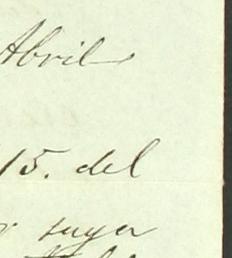 Abril
15. del
suya